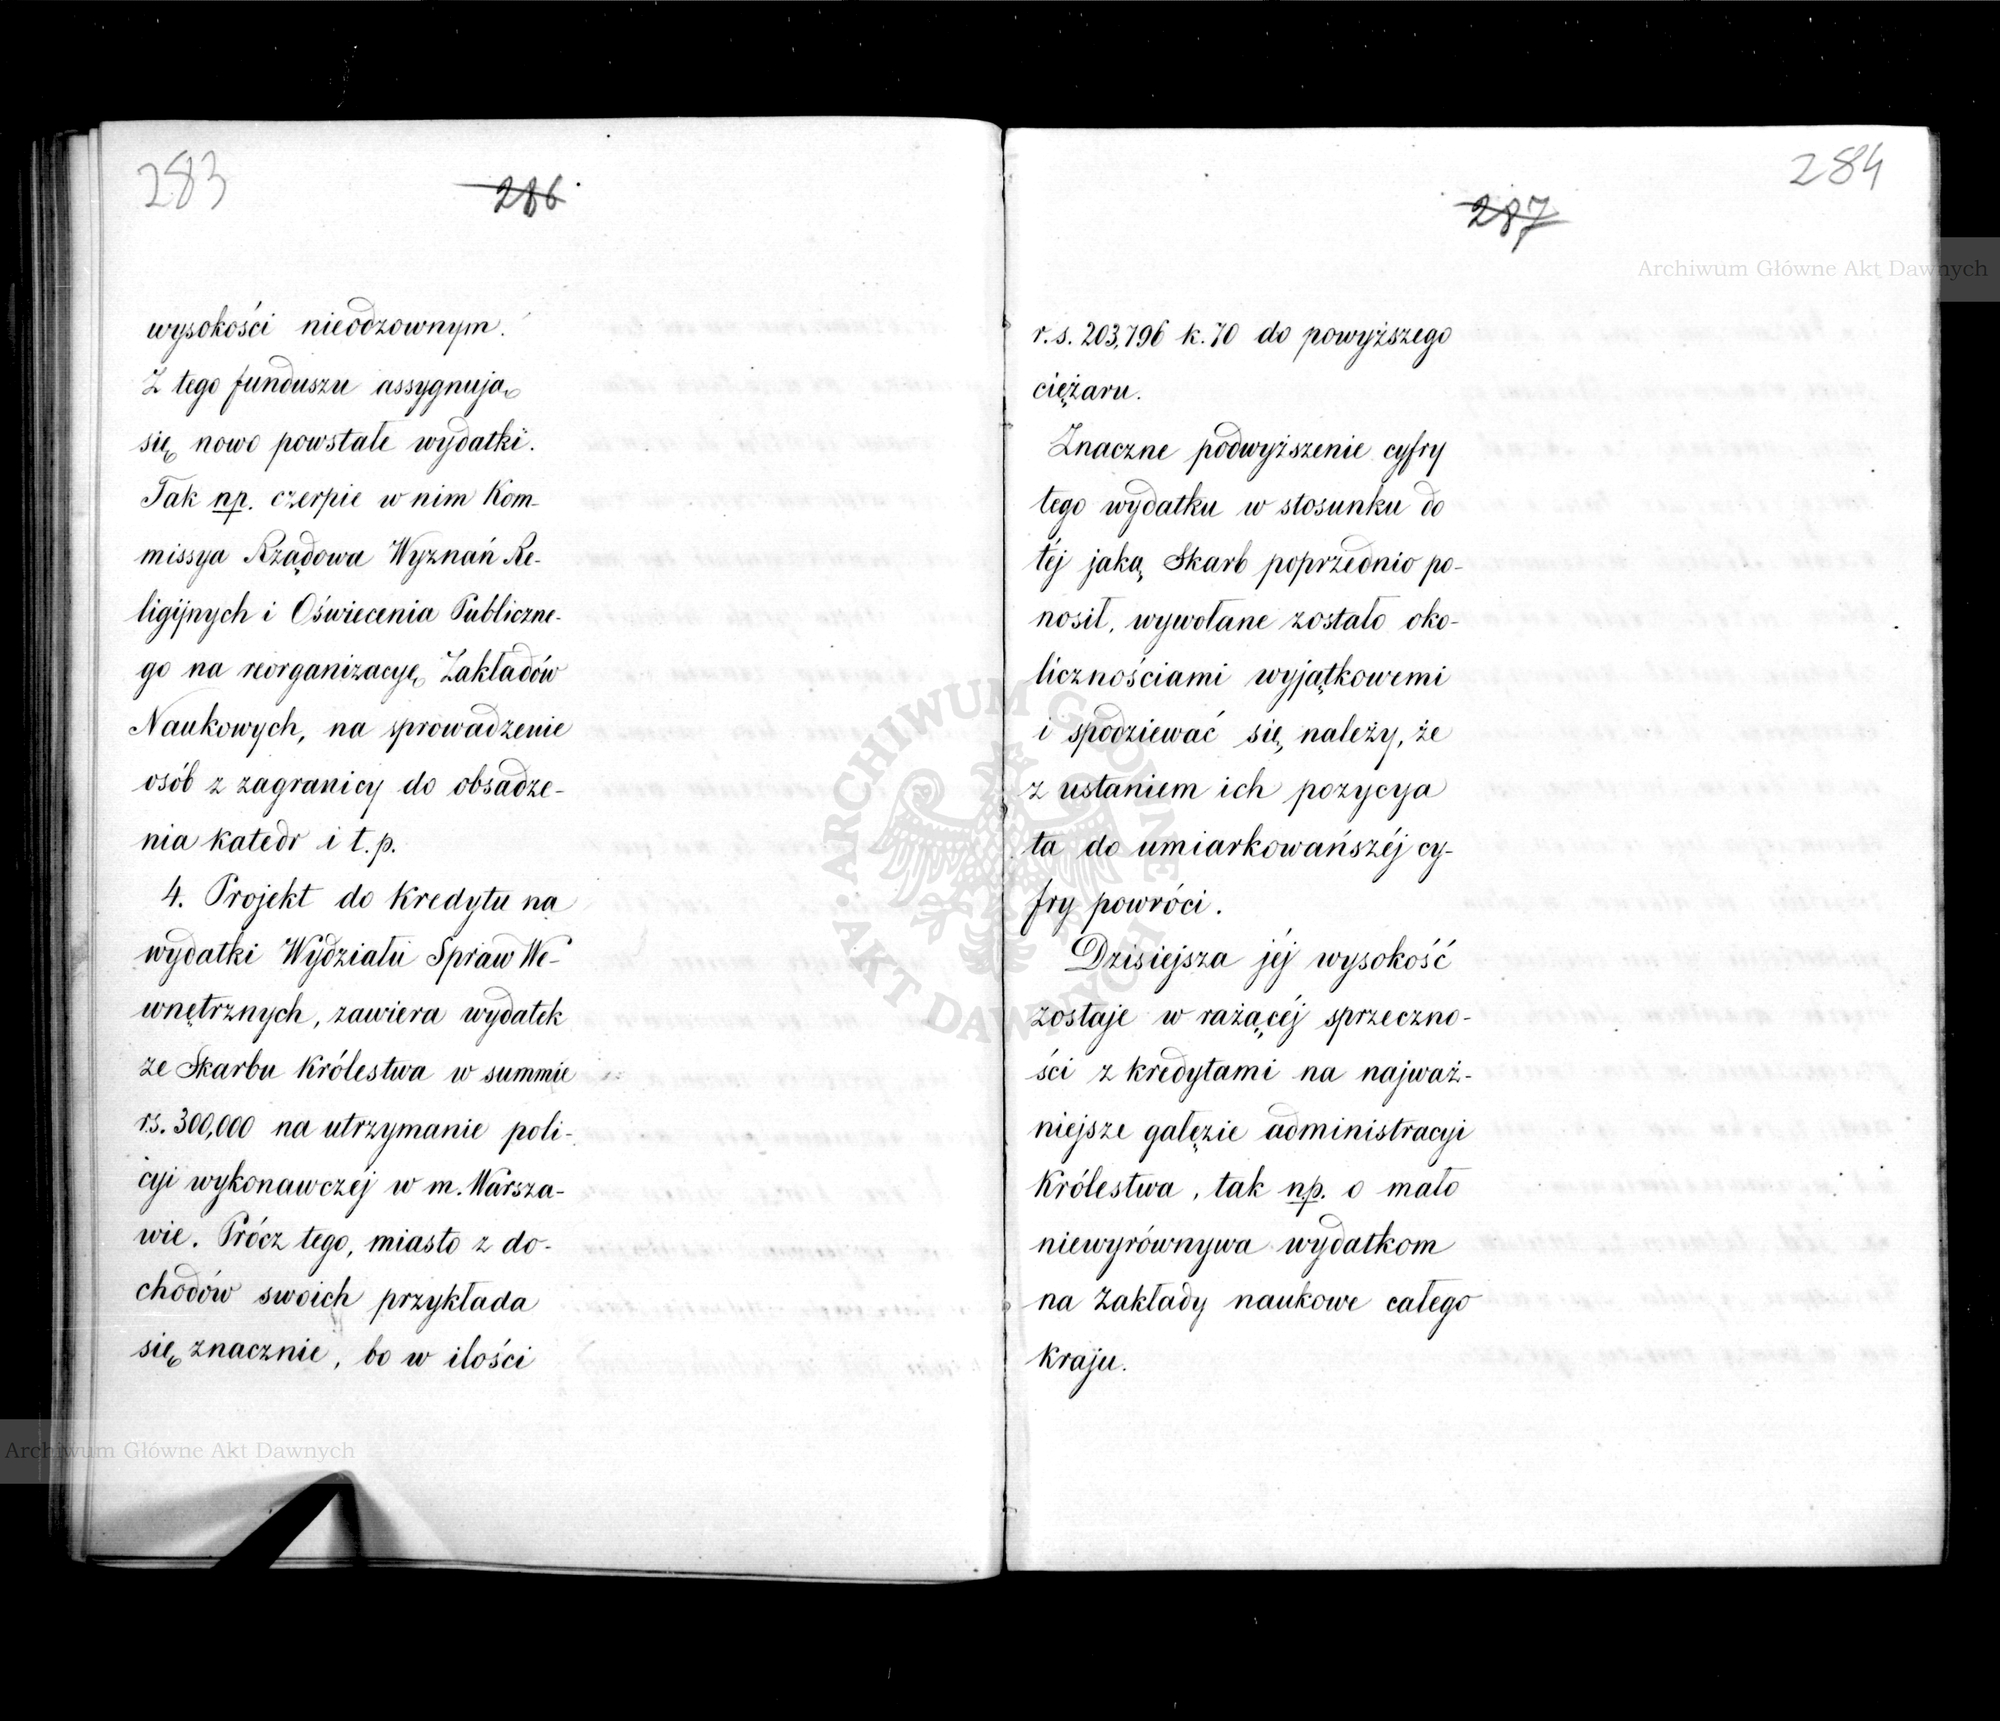 283
286
wysokości nieodzownym.
Z tego funduszu assygnują
się nowo powstałe wydatki.
Tak np. czerpie w nim Kom-
missya Rządowa Wyznań Re-
ligijnych i Oświecenia Publiczne-
go na reorganizacyę Zakładów
Naukowych, na sprowadzenie
osób z zagranicy do obsadze-
nia katedr i t.p.
4. Projekt do kredytu na
wydatki Wydziału Spraw We-
wnętrznych, zawiera wydatek
ze Skarbu Królestwa w summie
rs. 300,000 na utrzymanie poli-
cyi wykonawczéj w m. Warsza-
wie. Prócz tego, miasto z do-
chodów swoich przykłada
się znacznie, bo w ilości
284
287
r.s. 203,796 k. 70 do powyższego
ciężaru.
Znaczne podwyższenie cyfry
tego wydatku w stosunku do
téj jaką Skarb poprzednio po-
nosił, wywołane zostało oko-
licznościami wyjątkowemi
i spodziewać się należy, że
z ustaniem ich pozycya
ta do umiarkowańszéj cy-
fry powróci.
Dzisiejsza jéj wysokość
zostaje w rażącéj sprzeczno-
ści z kredytami na najważ-
niejsze gałęzie administracyi
Królestwa, tak np. o mało
niewyrównywa wydatkom
na Zakłady naukowe całego
kraju.
Archiwum Główne Akt Dawnych
ARCHIWUM GŁÓWNE AKT DAWNYCH
Archiwum Główne Akt Dawnych